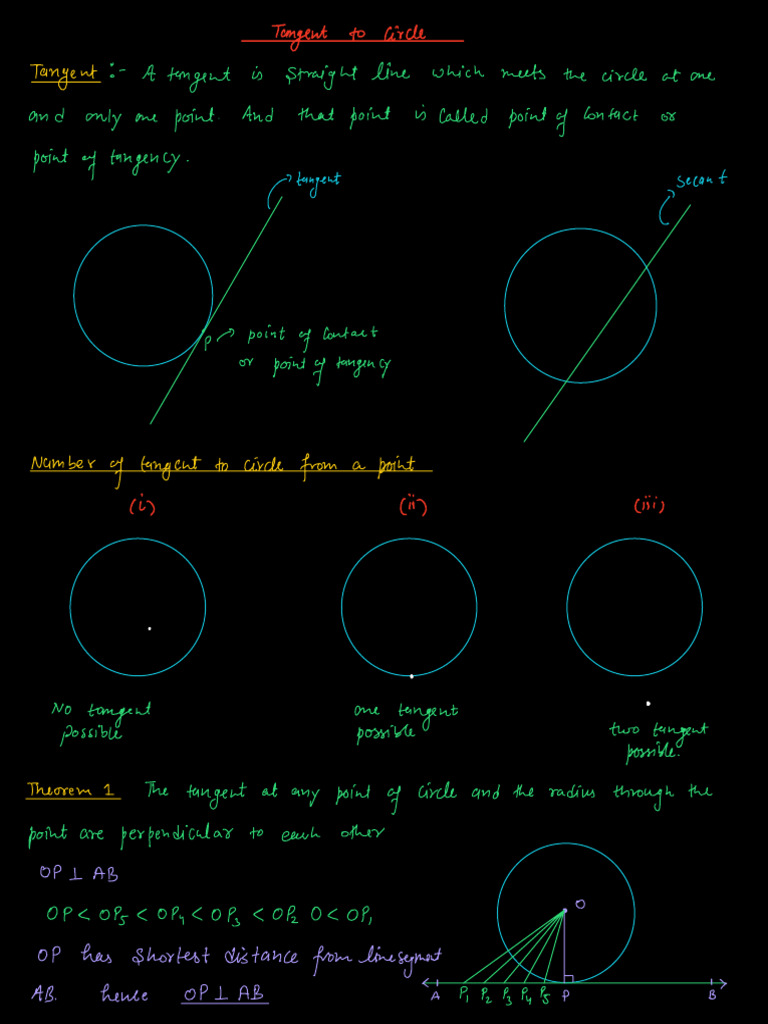 Tangent to Circle
Tangent :- A tangent is straight line which meets the circle at one
and only one point. And that point is called point of contact or
point of tangency.
tangent
secant
P → point of contact
or point of tangency
Number of tangent to circle from a point
(i) (ii) (iii)
No tangent possible
one tangent possible
two tangent possible.
Theorem 1 The tangent at any point of circle and the radius through the
point are perpendicular to each other
OP ⊥ AB
OP < OP5 < OP4 < OP3 < OP2 O < OP1
OP has shortest distance from line segment
AB. hence OP ⊥ AB
O
A P1 P2 P3 P4 P5 P B